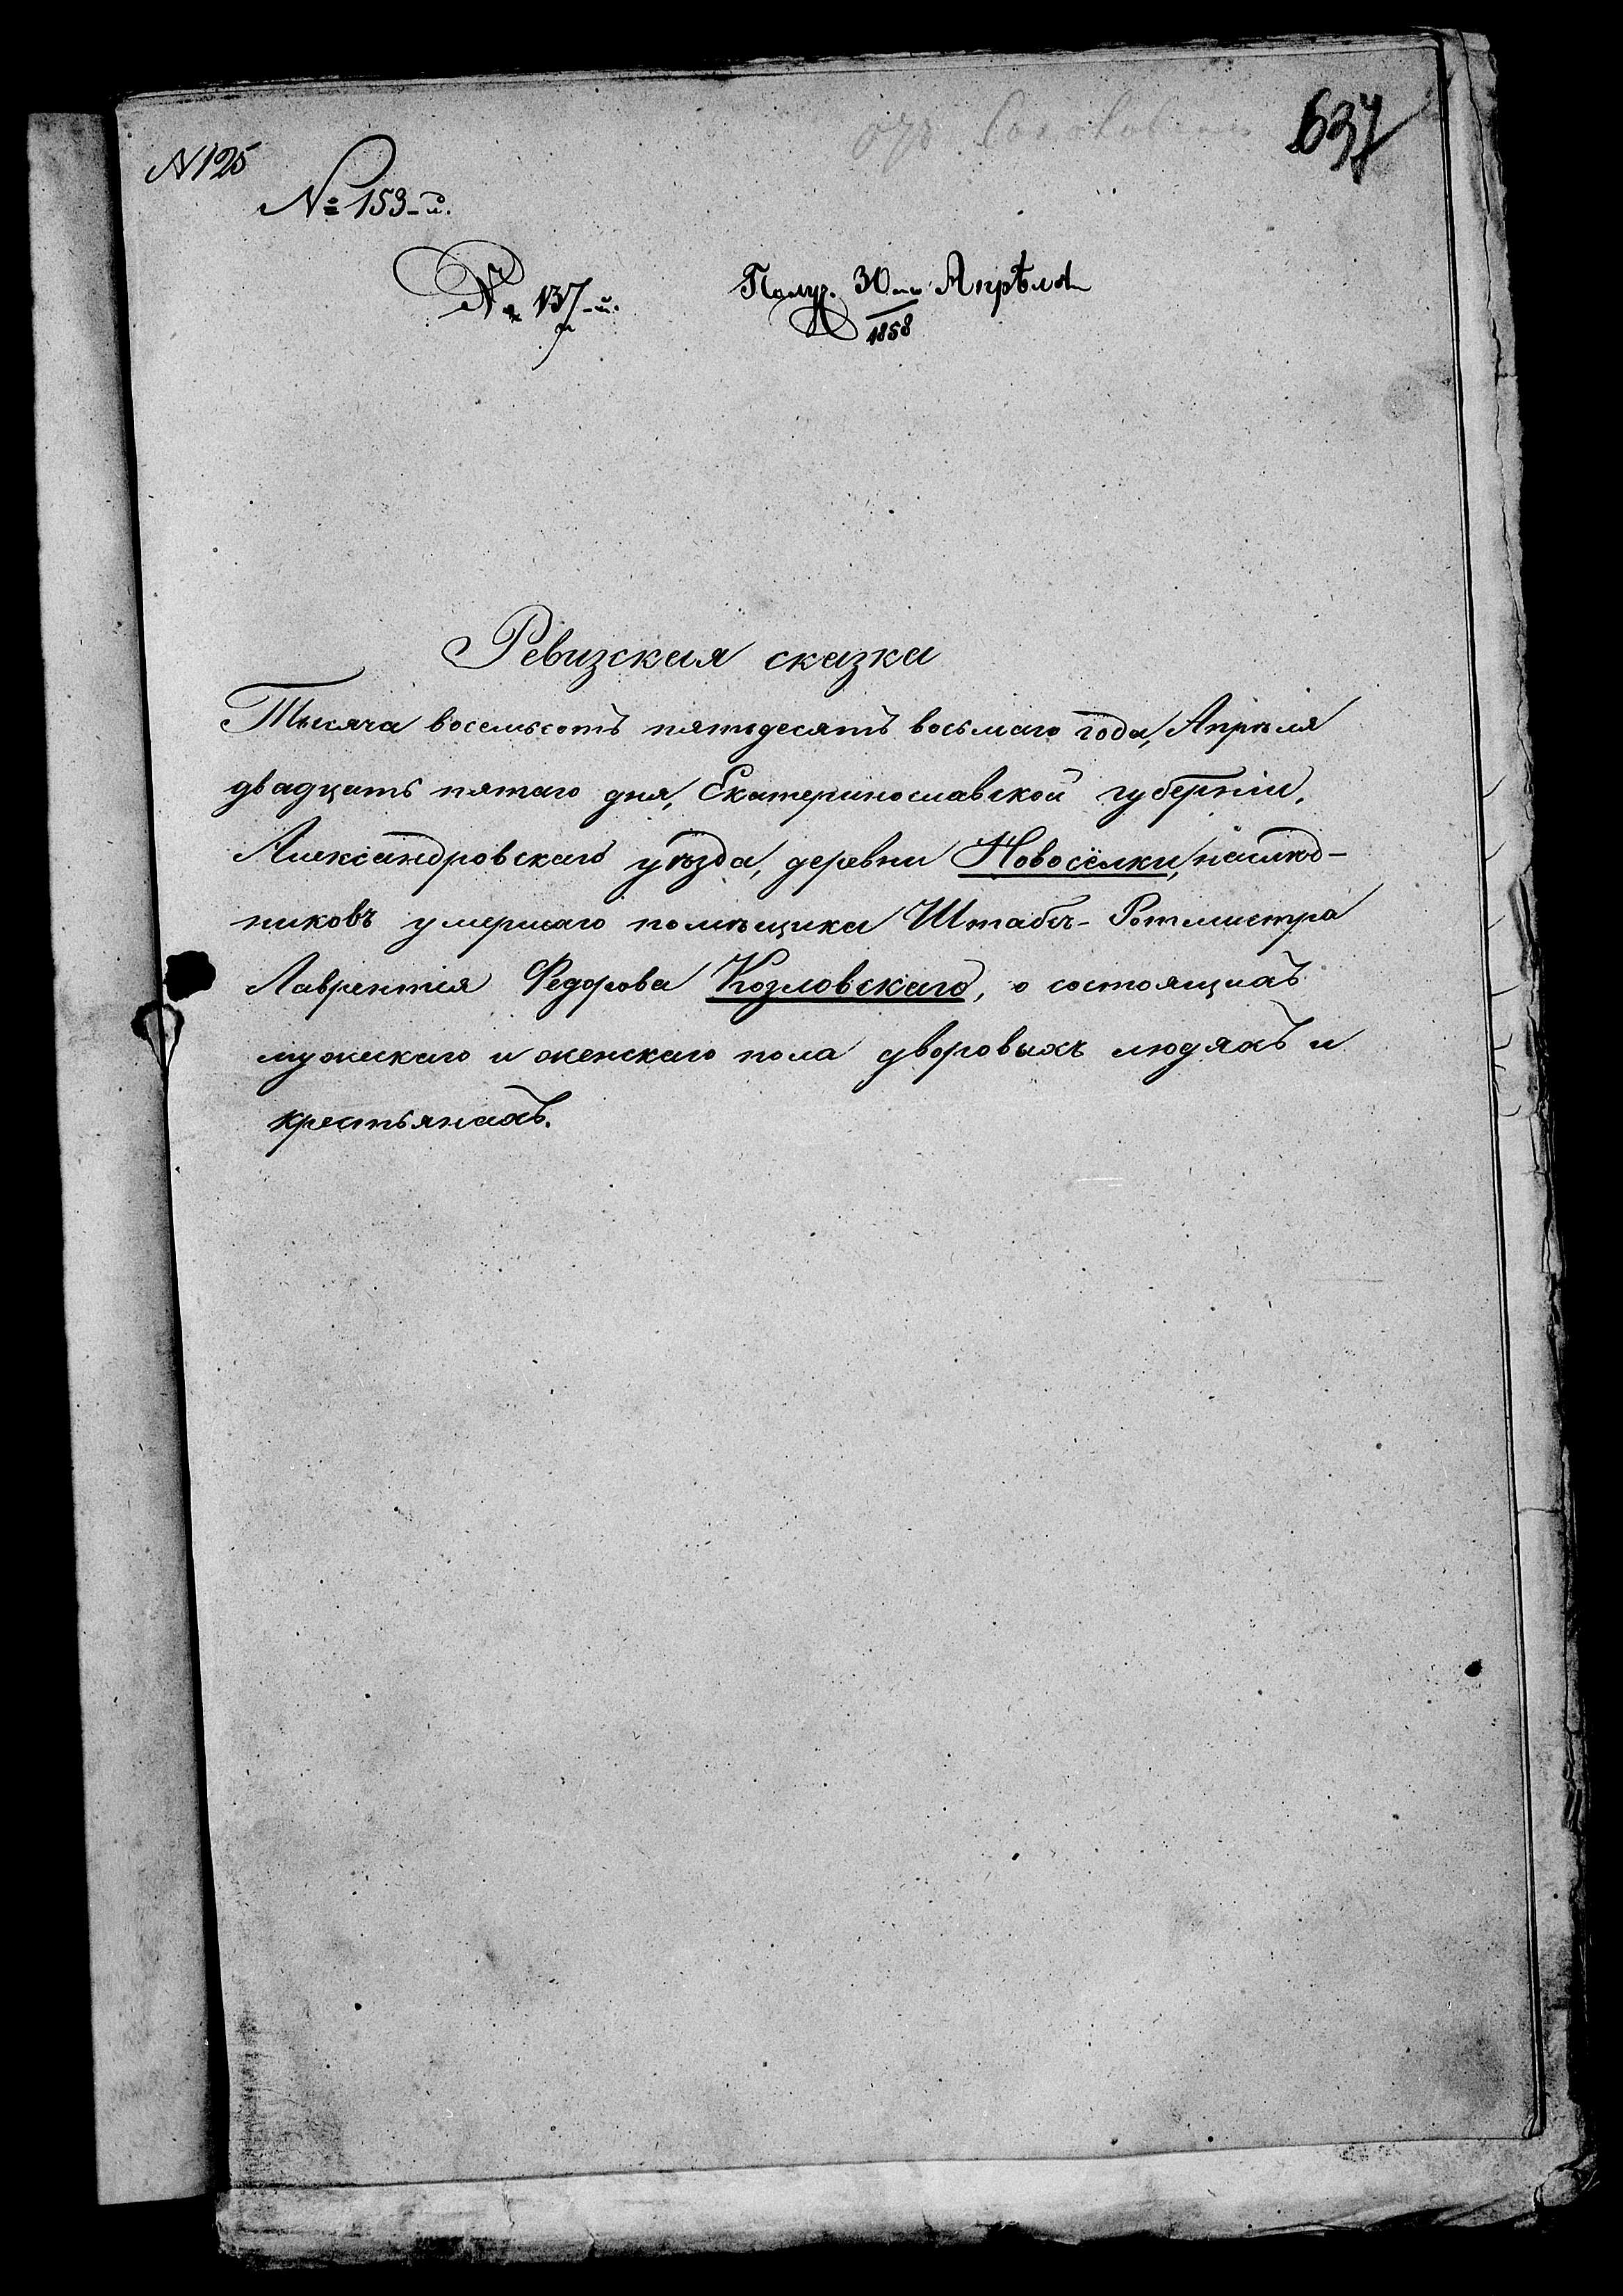 637
N 125
№ 153-й.
№ 137-й.
Получ. 30го Апрѣля
1858
Ревизская сказка
Тысяча восемьсотъ пятьдесятъ восьмаго года, Апрѣля
двадцать пятаго дня, Екатеринославской губерніи,
Александровскаго уѣзда, деревни Новосёлки, наслѣд-
никовъ умершаго помѣщика Штабсъ-Ротмистра
Лаврентія Федорова Козловскаго, о состоящихъ
мужескаго и женскаго пола дворовыхъ людяхъ и
крестьянахъ.